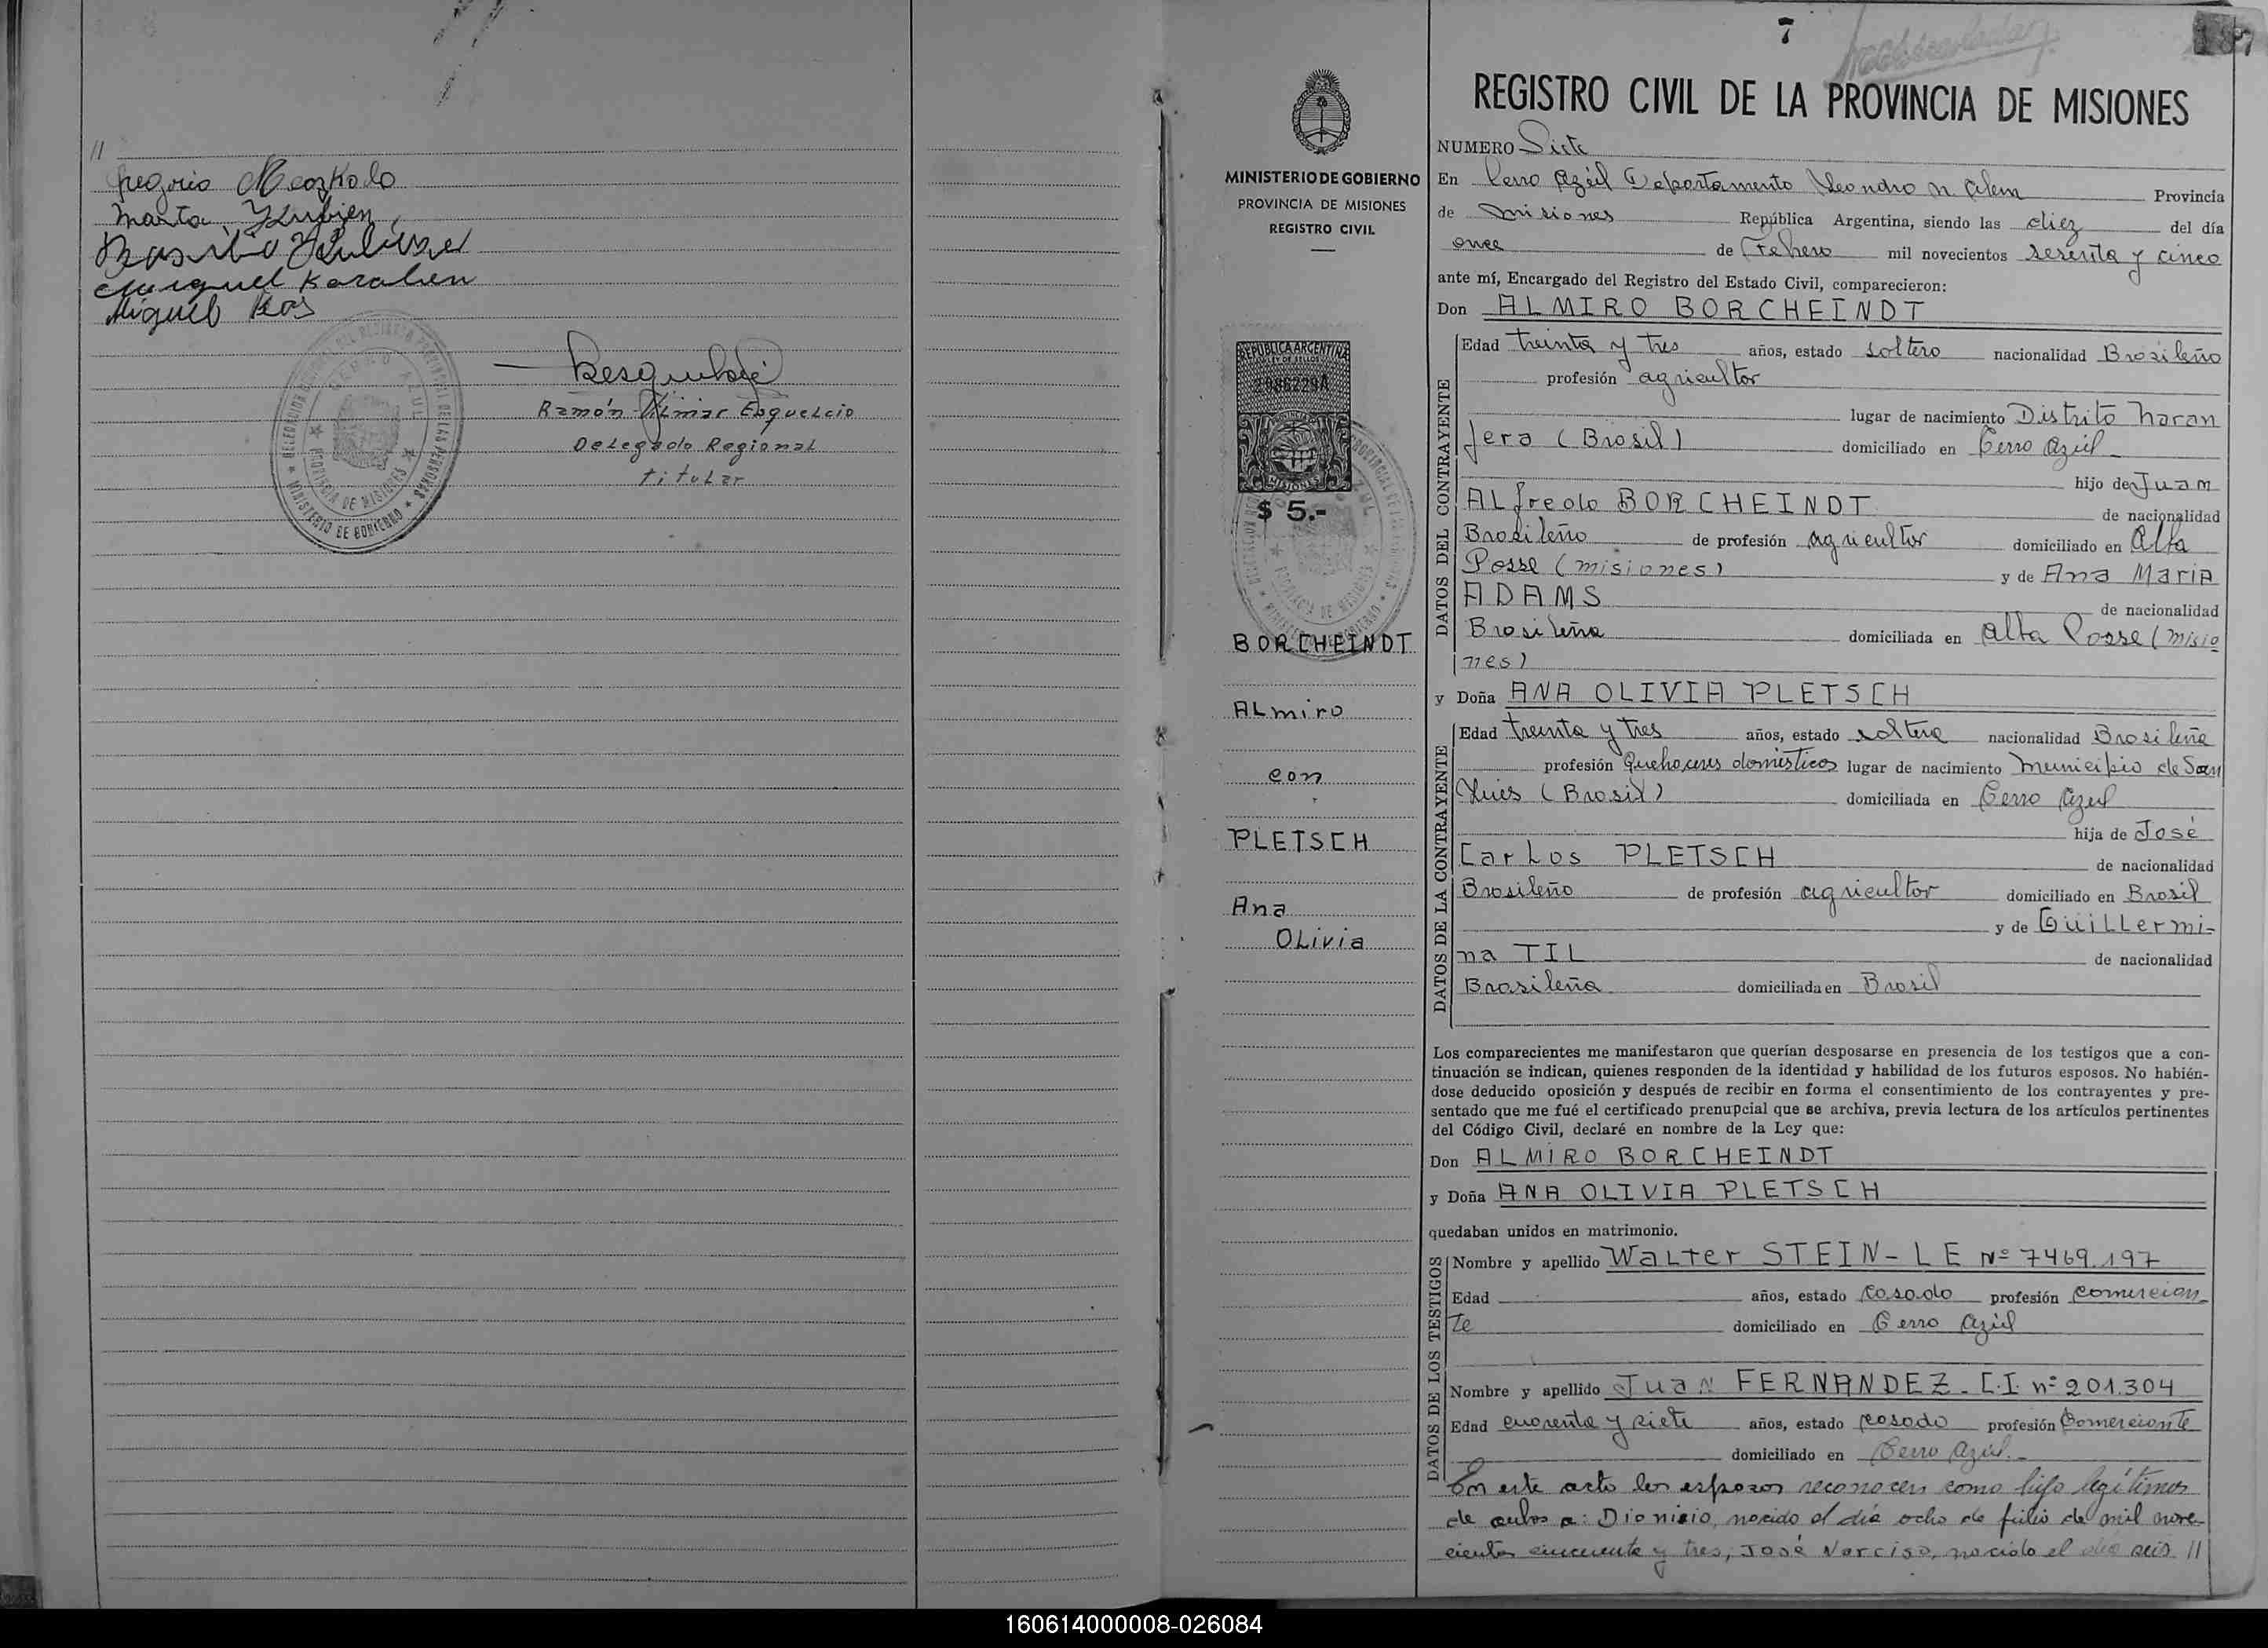 //
Gregorio
Marta
Miguel
Miguel Kos
Ramón Vilmar Esquelcio
Delegado Regional
titular
MINISTERIO DE GOBIERNO
CERRO AZUL
PROVINCIA DE MISIONES
7
REGISTRO CIVIL DE LA PROVINCIA DE MISIONES
MINISTERIO DE GOBIERNO
PROVINCIA DE MISIONES
REGISTRO CIVIL
REPUBLICA ARGENTINA
MISIONES
$ 5.-
BORCHEINDT
Almiro
con
PLETSCH
Ana
Olivia
NUMERO Siete
En Cerro Azúl Departamento Leandro N Alem Provincia
de Misiones República Argentina, siendo las diez del día
once de Febrero mil novecientos sesenta y cinco
ante mí, Encargado del Registro del Estado Civil, comparecieron:
Don ALMIRO BORCHEINDT
DATOS DEL CONTRAYENTE
Edad treinta y tres años, estado soltero nacionalidad Brasileño
profesión agricultor
lugar de nacimiento Distrito Naran
jera (Brasil) domiciliado en Cerro Azúl
hijo de Juam
Alfredo BORCHEINDT de nacionalidad
Brasileño de profesión agricultor domiciliado en Alta
Posse (misiones) y de Ana Maria
ADAMS de nacionalidad
Brasileña domiciliada en Alta Posse (misio
nes)
y Doña ANA OLIVIA PLETSCH
DATOS DE LA CONTRAYENTE
Edad treinta y tres años, estado soltera nacionalidad Brasileña
profesión Quehaceres domésticos lugar de nacimiento Municipio de San
Luis (Brasil) domiciliada en Cerro Azul
hija de José
Carlos PLETSCH de nacionalidad
Brasileño de profesión agricultor domiciliado en Brasil
y de Guillermi-
na TIL de nacionalidad
Brasileña domiciliada en Brasil
Los comparecientes me manifestaron que querían desposarse en presencia de los testigos que a con-
tinuación se indican, quienes responden de la identidad y habilidad de los futuros esposos. No habién-
dose deducido oposición y después de recibir en forma el consentimiento de los contrayentes y pre-
sentado que me fué el certificado prenupcial que se archiva, previa lectura de los artículos pertinentes
del Código Civil, declaré en nombre de la Ley que:
Don ALMIRO BORCHEINDT
y Doña ANA OLIVIA PLETSCH
quedaban unidos en matrimonio.
DATOS DE LOS TESTIGOS
Nombre y apellido Walter STEIN - LE Nº 7469.197
Edad años, estado casado profesión comercian
te domiciliado en Cerro Azúl
Nombre y apellido Juan FERNANDEZ - C.I. nº 201.304
Edad cuarenta y siete años, estado casado profesión Comerciante
domiciliado en Cerro Azúl.-
En este acto los esposos reconocen como hijo legítimos
de ambos a: Dionisio, nacido el día ocho de julio de mil nove-
cientos cincuenta y tres, José Narciso, nacido el día seis //
160614000008-026084